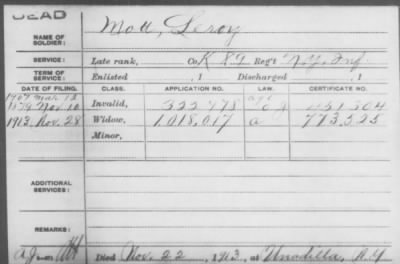 DEAD
NAME OF SOLDIER: Mott, Leroy
SERVICE: Late rank, Co. K 89 Reg't N.Y. Inf.
TERM OF SERVICE: Enlisted , 1 Discharged , 1
DATE OF FILING. CLASS. APPLICATION NO. LAW. CERTIFICATE NO.
1907 Mar 12 age
1879 Nov. 10 Invalid, 322,478 451,304
1913, Nov. 28 Widow, 1,018,017 a 773,525
Minor,
ADDITIONAL SERVICES:
REMARKS:
Died Nov. 22, 1913, at Unadilla, N.Y.